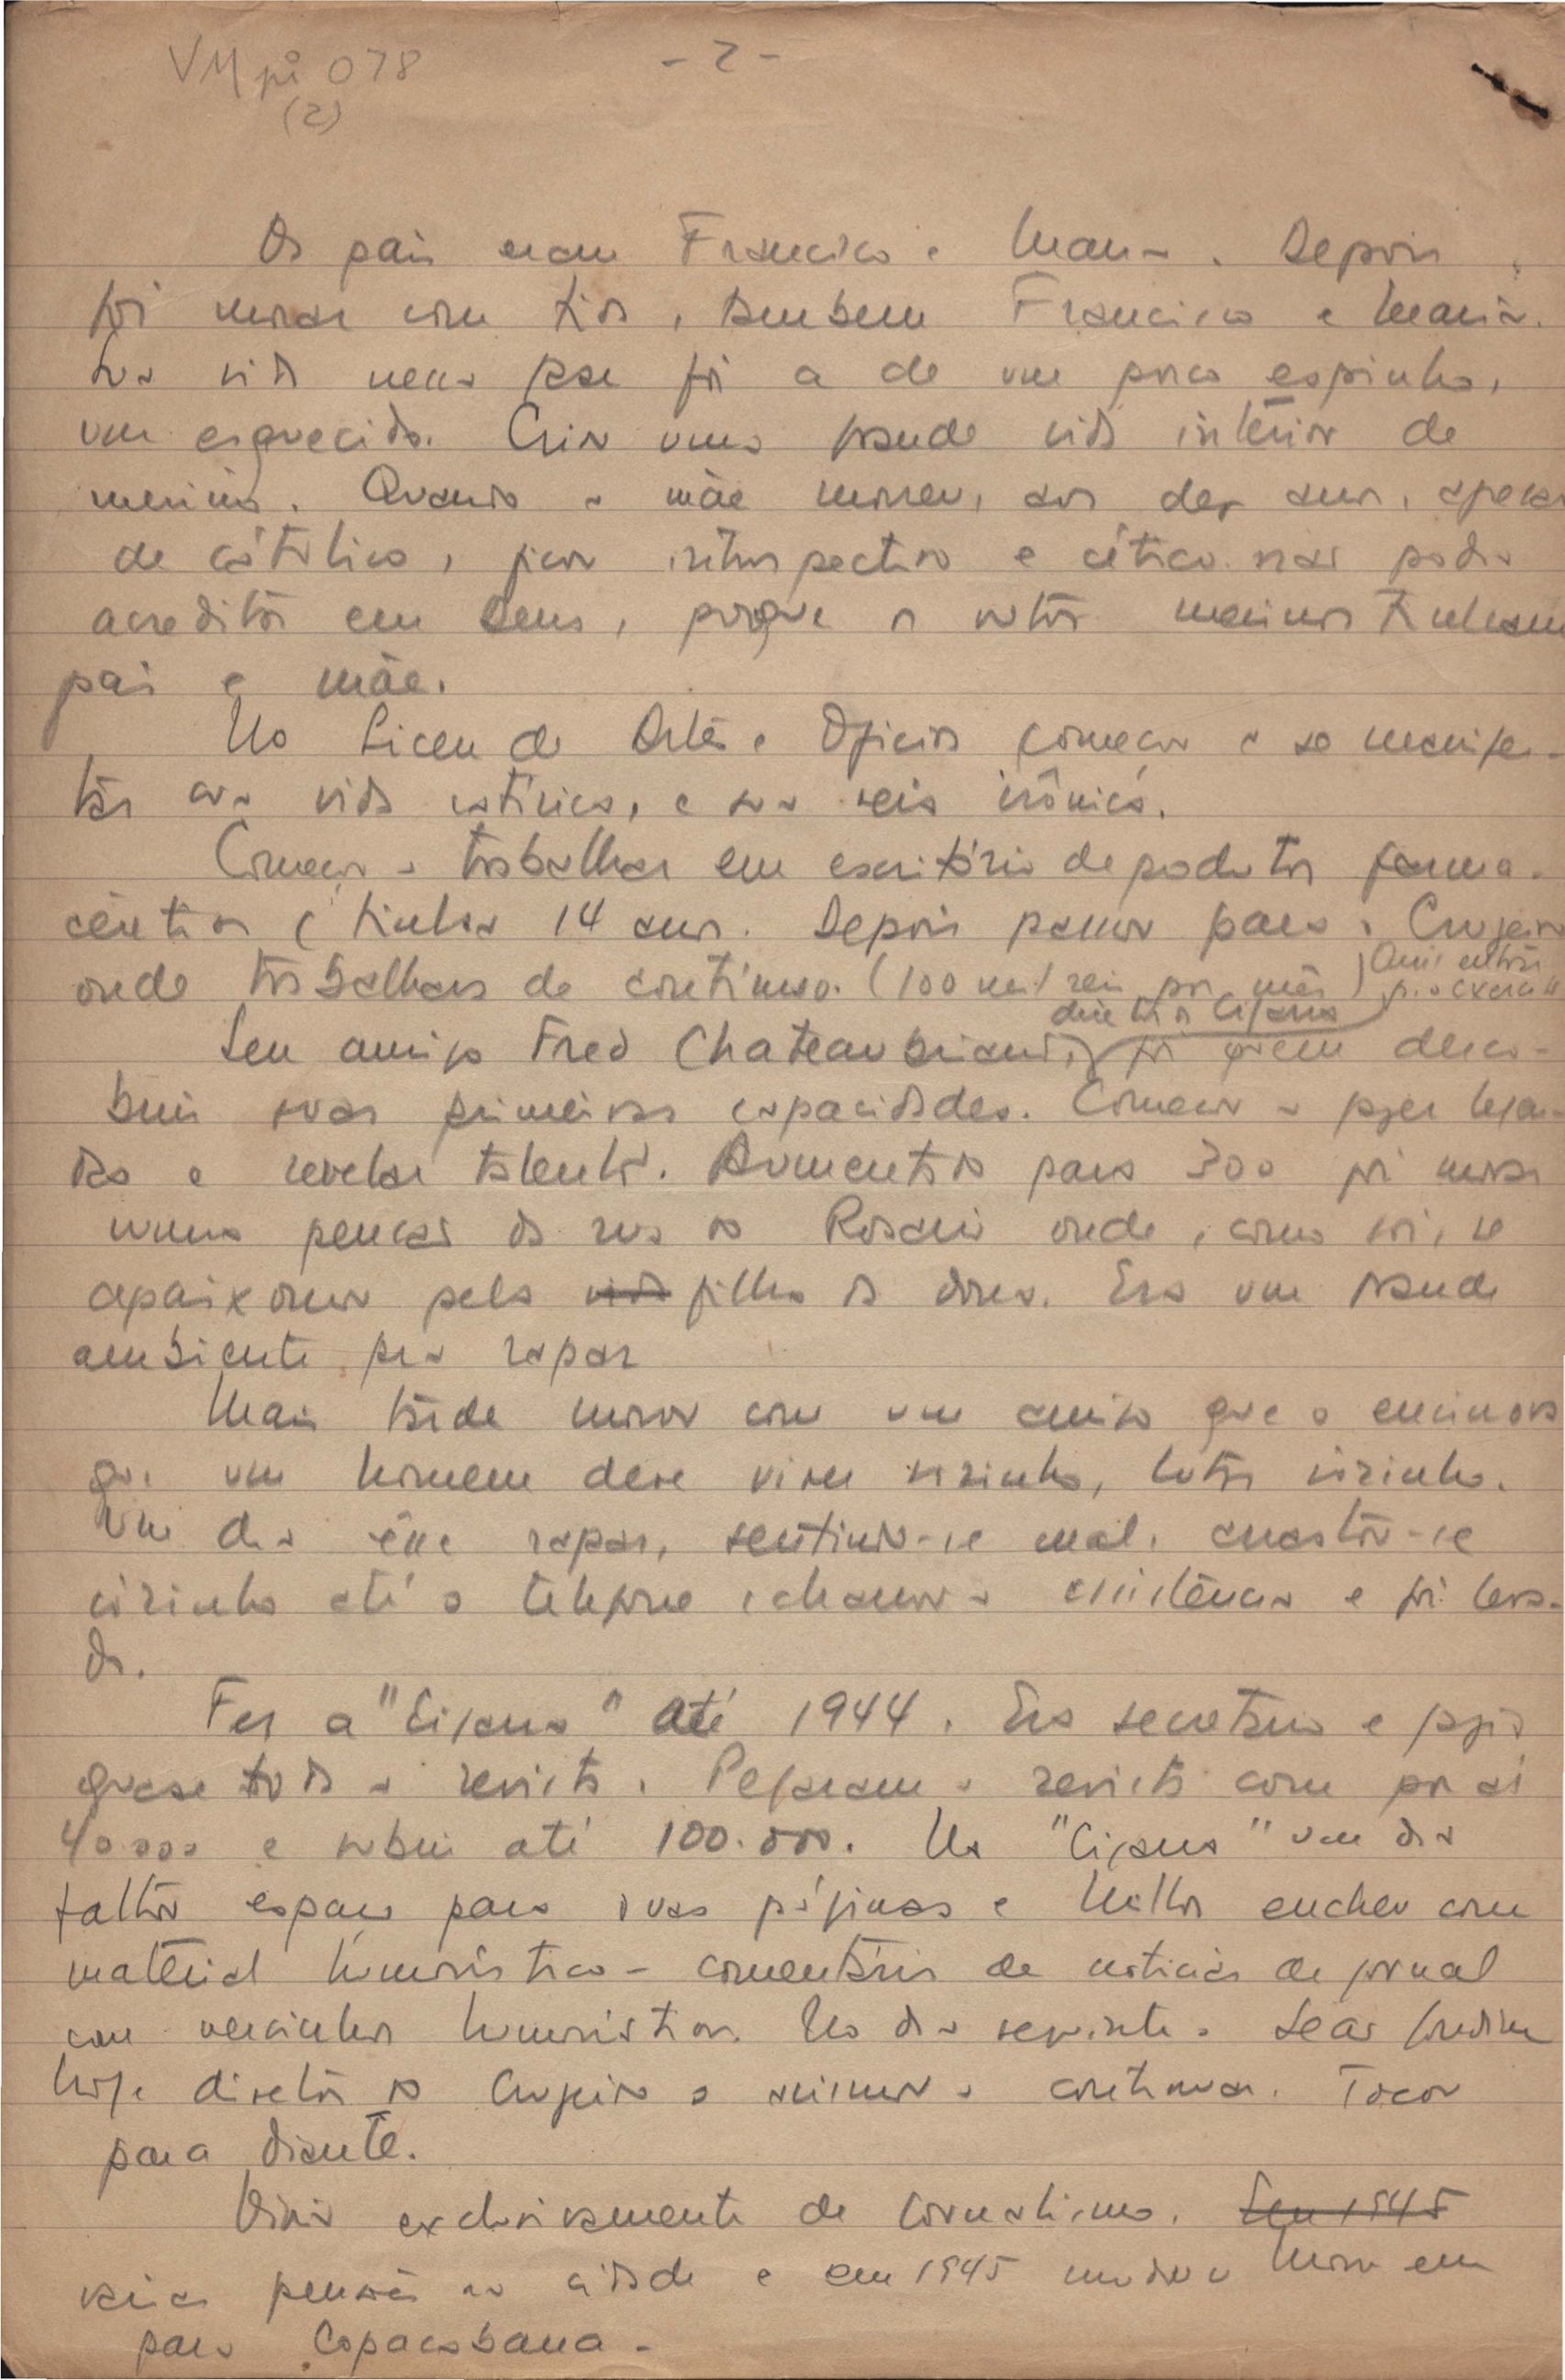 VMpi 078
- 2 -
(2)
Os pais eram Francisco e Maria. Depois
foi morar com tios, tambem Francisco e Maria.
Sua vida nessa fase foi a de um porco espinho,
um esquecido. Criou uma grande vida interior de
menino. Quando a mãe morreu, aos dez anos, apesar
de católico, ficou introspectivo e cético. não podia
acreditar em Deus, porque os outros meninos tinham
pai e mãe.
No Liceu de Artes e Oficios começou a se manifes-
tar sua vida satírica, e sua veia irônica.
Começou a trabalhar em escritório de produtos farma-
cêuticos (tinha 14 anos. Depois passou para o Cruzeiro
onde trabalhava de contínuo. (100 mil reis por mês)
diretor a Cigarra
Seu amigo Fred Chateaubriand, foi quem desco-
briu suas primeiras capacidades. Começou a fazer legen-
das e revelar talento. Aumentado para 300 foi morar
numa pensão da rua do Rosario onde, como soi, se
apaixonou pela vida filha da dona. Era um grande
ambiente pra rapaz
Mais tarde morou com um amigo que o ensinava
que um homem deve viver sozinho, lutar sozinho.
Um dia êsse rapaz, sentindo-se mal, arrastou-se
sòzinho até o telefone, chamou a assistência e foi leva-
do.
Fez a "Cigarra" até 1944. Era secretario e fazia
quase toda a revista. Pegaram a revista com por ai
40.000 e subiu até 100.000. Na "Cigarra" um dia
faltou espaço para duas páginas e Millor encheu com
material humorístico - comentários de noticias de jornal
com versinhos humoristicos. No dia seguinte o Leão Gondim
hoje diretor do Cruzeiro o animou a continuar. Tocou
para diante.
Vivia exclusivamente de jornalismo. Em 1945
varias pensões na cidade e em 1945 mudou Morou em
para Copacabana -